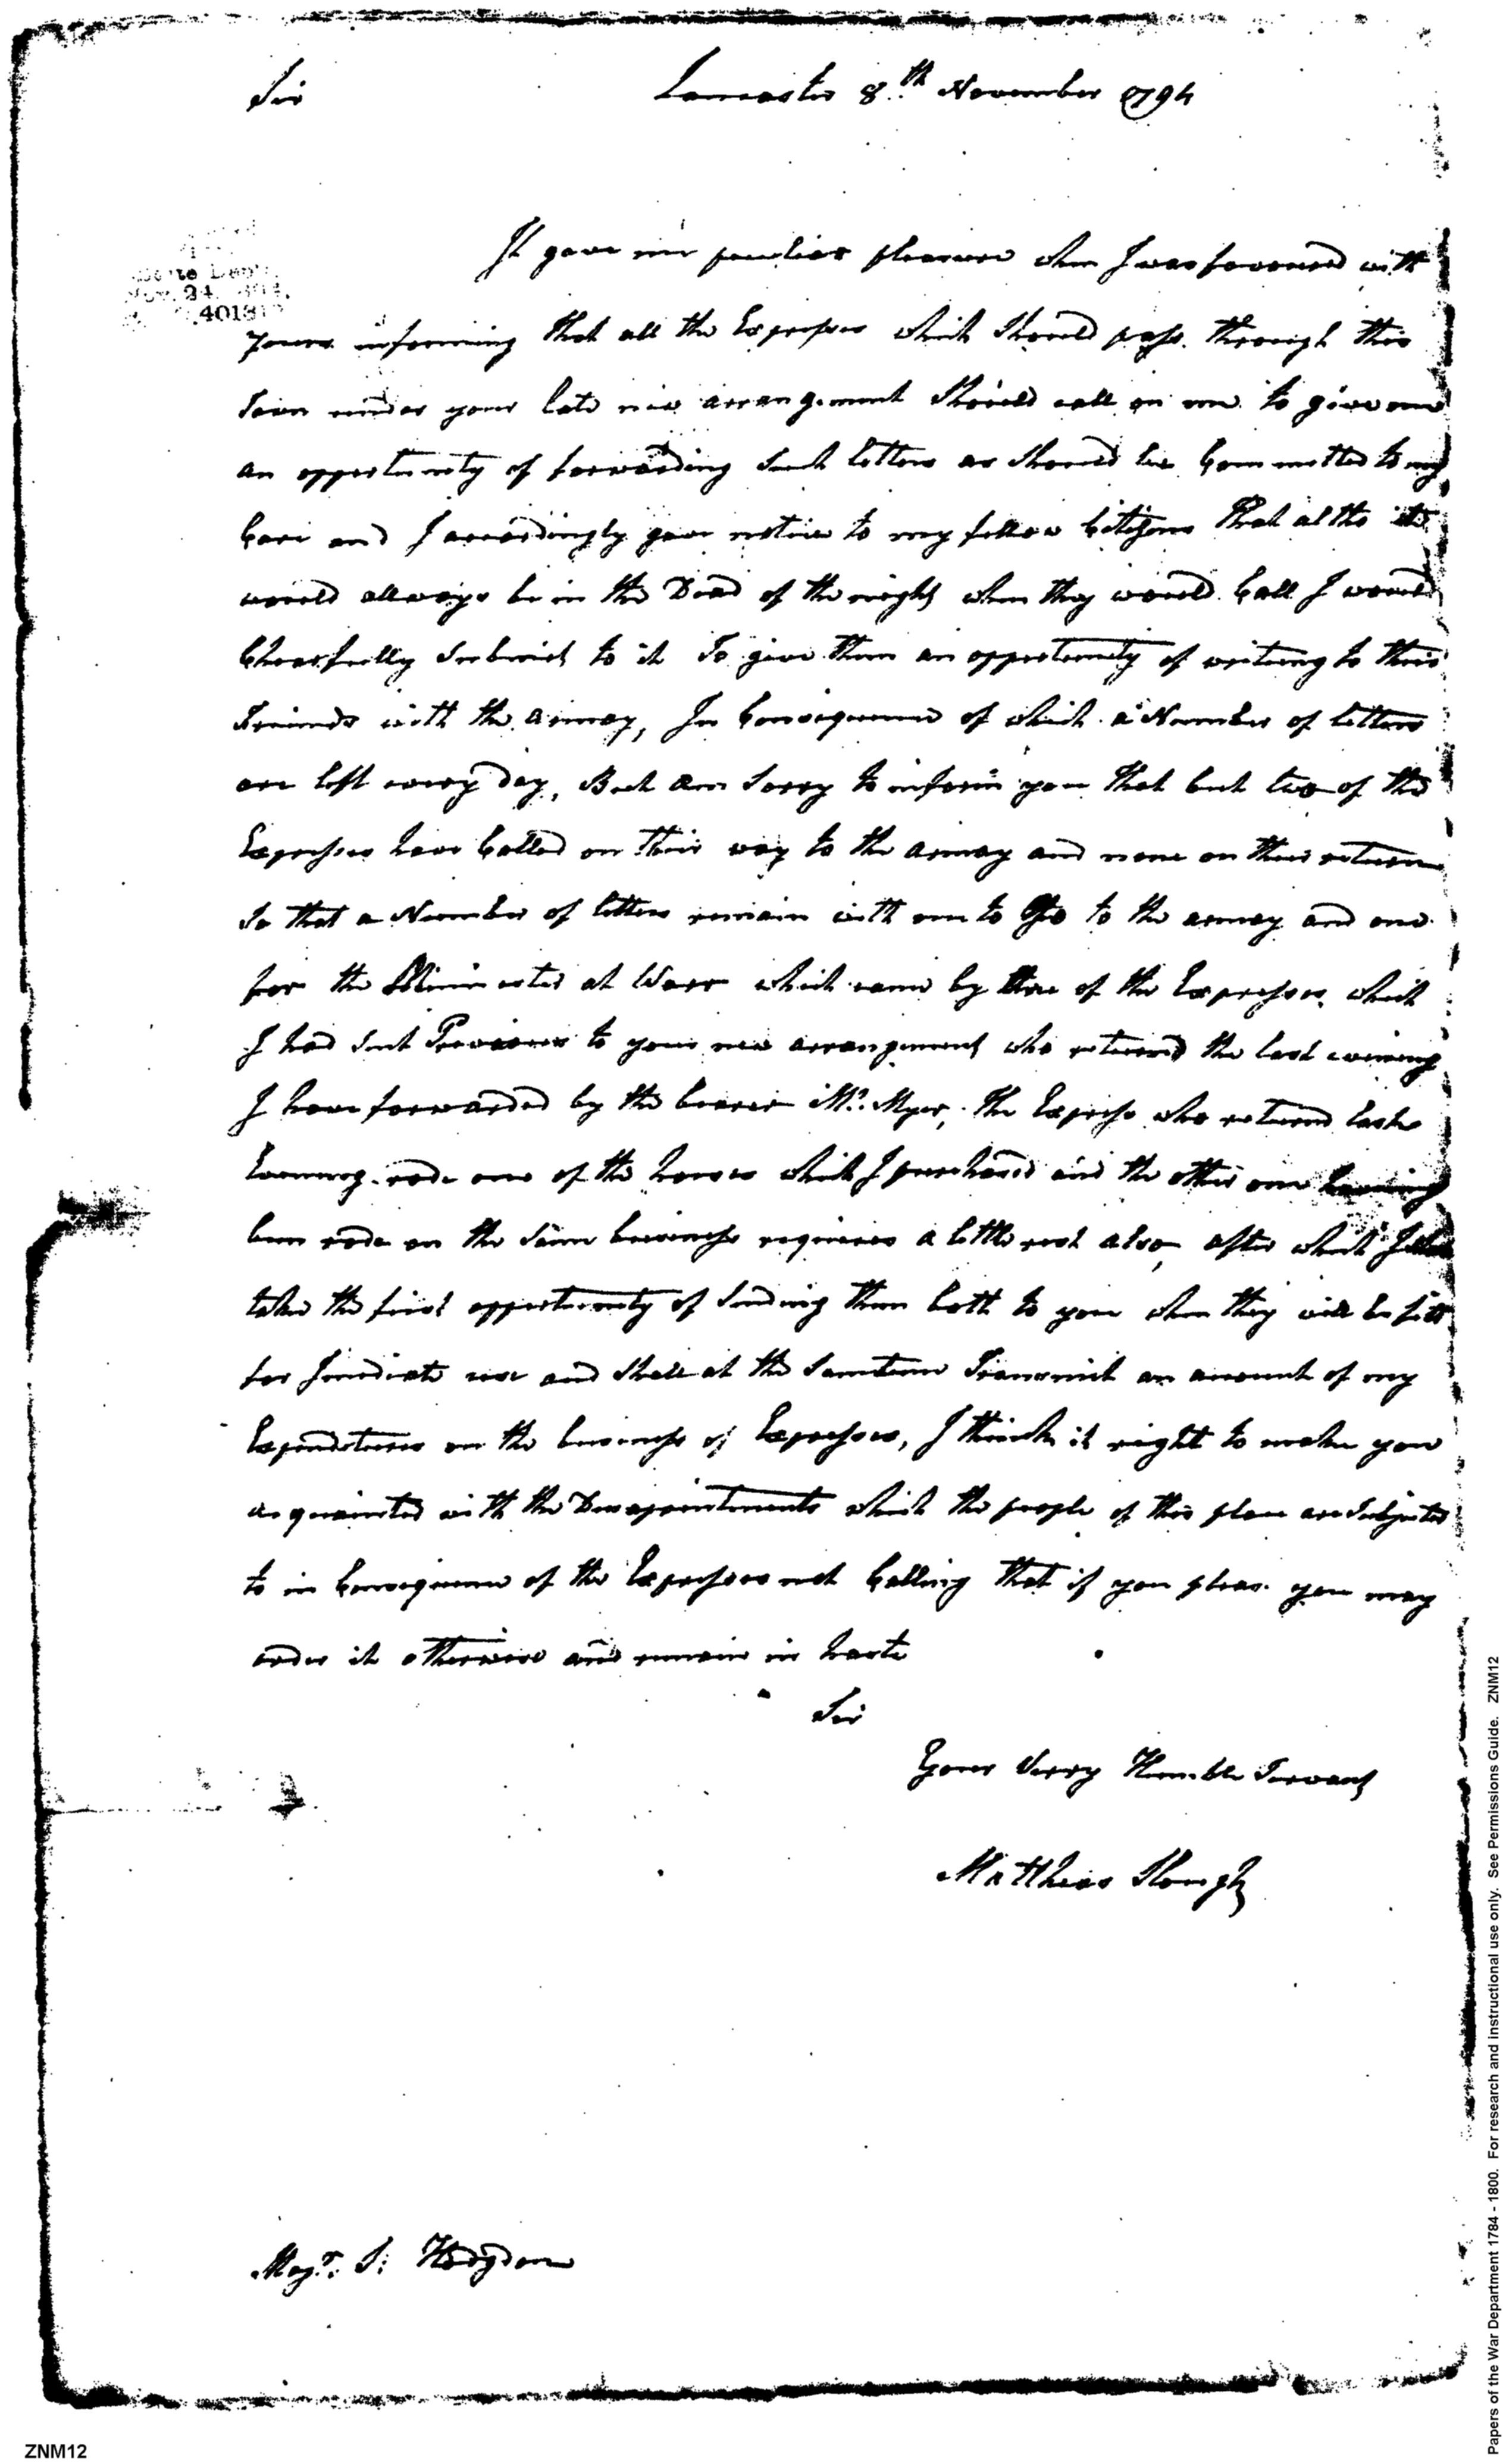 Sir Lancaster 8th November 1794
It gave me peculiar pleasure when I was favoured with
State Dep't.
24
4013
yours informing that all the Expresses which should pass through this
Town under your late new arrangement should call on me to give me
an opportunity of forwarding such letters as should be Committed to my
Care and I accordingly gave notice to my fellow Citizens that altho it
would allways be in the Dead of the night when they would Call I would
Chearfully Submit to it To give them an opportunity of writing to their
Friends with the armey, In Consequence of which a Number of letters
are left every day, But am Sorry to inform you that but two of the
Expresses have Called on their way to the armey and none on their return
So that a Number of letters remain with me to Go to the armey and one
for the Minister at Warr which came by one of the Expresses which
I had sent Previous to your new arrangement who returned the last evening
I have forwarded by the bearer Mr. Myer, The Express who returned last
Evening rode one of the horses which I purchased and the other one having
been rode on the same business requires a little rest also, after which I shall
take the first opportunity of sending them both to you when they will be fitt
for Imediate use and shall at the Sametime Transmit an amount of my
Expenditures on the business of Expresses, I think it right to make you
acquainted with the Disapointments which the people of this place are subjected
to in Consequence of the Expresses not Calling that if you please you may
order it otherwise and remain in haste
Sir
Your Verry Humble Servant
Matthias Slough
Majr. S: Hodgdon
ZNM12
Papers of the War Department 1784 - 1800. For research and instructional use only. See Permissions Guide. ZNM12